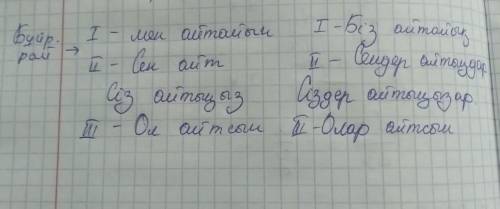 Бұйр. рай → I - мен айтайын I - Біз айтайық
II - Сен айт II - Сендер айтыңдар
Сіз айтыңыз Сіздер айтыңыздар
III - Ол айтсын III - Олар айтсын